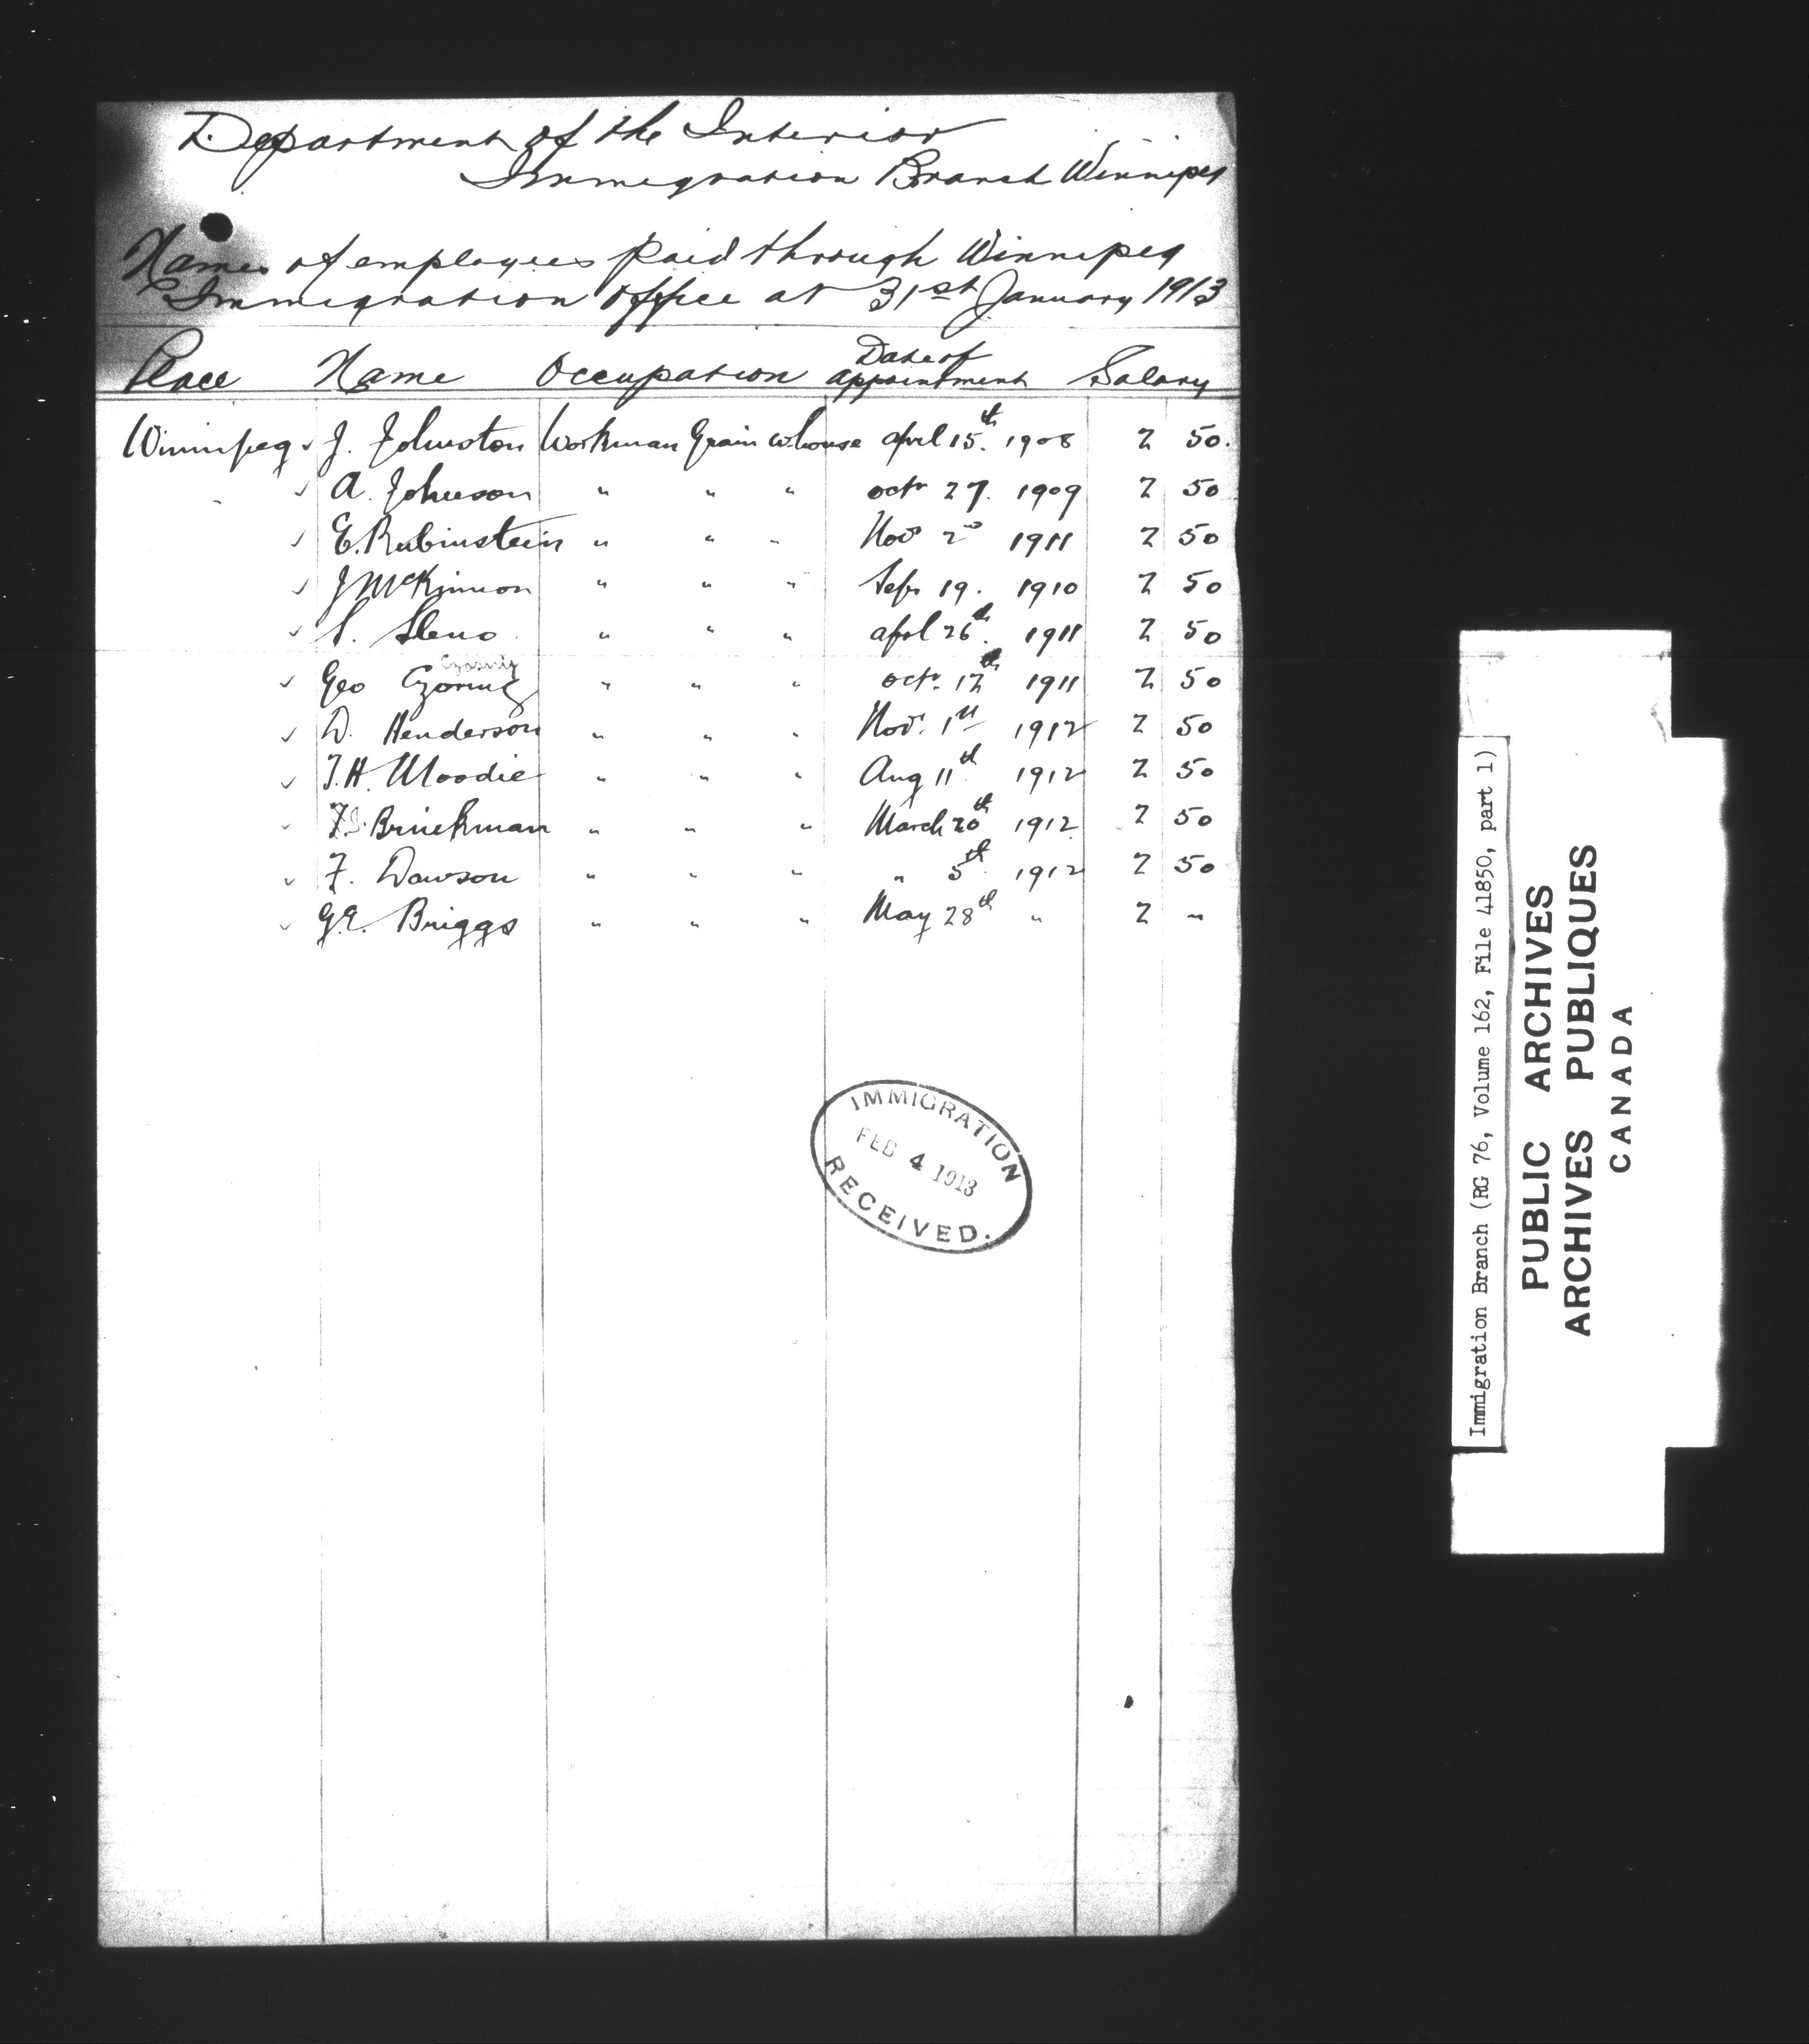 Department of the Interior
Immigration Branch Winnipeg
Names of employees paid through Winnipeg
Immigration office at 31st January 1913
Place Name Occupation Date of appointment Salary
Winnipeg ✓ J. Johnston Workman Grain whouse april 15th 1908 2 50.
✓ A. Johnson " " " octr 27. 1909 2 50
✓ E. Rubinstein " " " Nov 2nd 1911 2 50
✓ J McKinnon " " " Sepr 19. 1910 2 50
✓ S. " " " aprl 26th 1911 2 50
✓ Geo " " " octr. 12th 1911 2 50
✓ D. Henderson " " " Nov. 1st 1912 2 50
✓ T.H. Moodie " " " Aug 11th 1912 2 50
✓ Brinkman " " " March 20th 1912 2 50
✓ F. Dawson " " " " 5th 1912 2 50
✓ G.E. Briggs " " " May 28th " 2 "
IMMIGRATION
FEB 4 1913
RECEIVED.
Immigration Branch (RG 76, Volume 162, File 41850, part 1)
PUBLIC ARCHIVES
ARCHIVES PUBLIQUES
CANADA